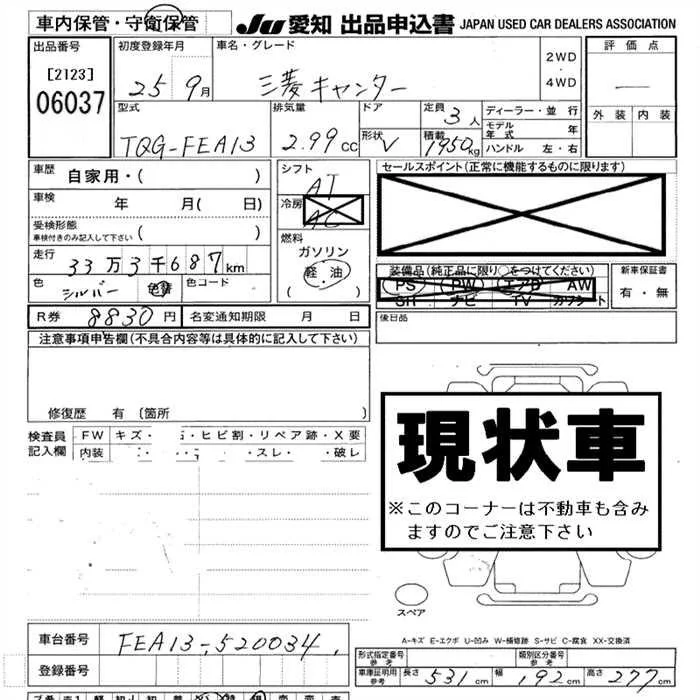 車内保管・守衛保管 JU 愛知 出品申込書 JAPAN USED CAR DEALERS ASSOCIATION
出品番号 初度登録年月 車名・グレード 2WD・4WD 評価点
[2123]
06037 25 9月 三菱キャンター ー
型式 排気量 ドア 定員 3人 ディーラー・並行 外装 内装
TQG-FEA13 2.99cc 形状 V 積載 1950kg モデル年式 年
ハンドル 左・右
車歴 自家用・( ) シフト AT セールスポイント(正常に機能するものに限ります)
車検 年 月( 日) 冷房 AC
受検形態
車検付きのみ記入して下さい ( ) 燃料
ガソリン
走行 33万3千687km 軽・油
( )
装備品(純正品に限り○をつけてください) 新車保証書
色 シルバー 色替 色コード PS PW エアB AW 有・無
SR ナビ TV カワシート
R券 8830円 名変通知期限 月 日 後日品
注意事項申告欄(不具合内容等は具体的に記入して下さい)
修復歴 有(箇所 )
検査員記入欄 FW キズ・ ・ヒビ割・リペア跡・X要
内装 ・スレ・ ・破レ
現状車
※このコーナーは不動車も含み
ますのでご注意下さい
スペア
A-キズ E-エクボ U-凹み W-補修跡 S-サビ C-腐食 XX-交換済
車台番号 FEA13-520034
形式指定番号 参考 類別区分番号 参考
登録番号 車庫証明用 参考 長さ 531cm 幅 192cm 高さ 277cm